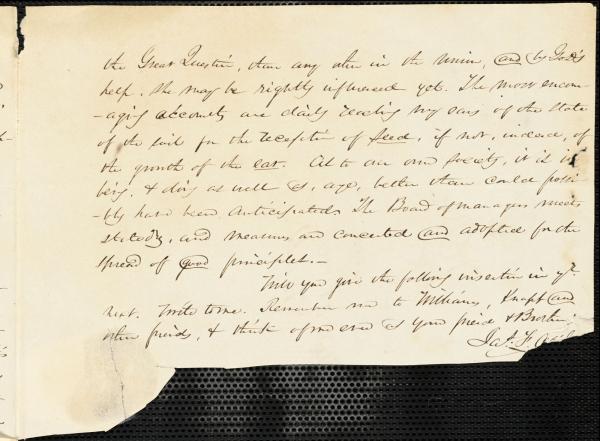 the Great Question, than any other in the Union, and by God's
help, she may be rightly influenced yet. The most encou-
-aging accounts are daily reaching my ears of the state
of the soil for the reception of seed, if not, indeed, of
the growth of the ear. As to our own society, it is in
being, & doing as well as, aye, better than could possi-
-bly have been anticipated. The Board of managers meets
steadily, and measures are concerted and adopted for the
spread of good principles.—
Will you give the following insertion in yr.
next. Write to me. Remember me to Williams, Knapp and
other friends, & think of me ever as your friend & Brother.
Jas. F.